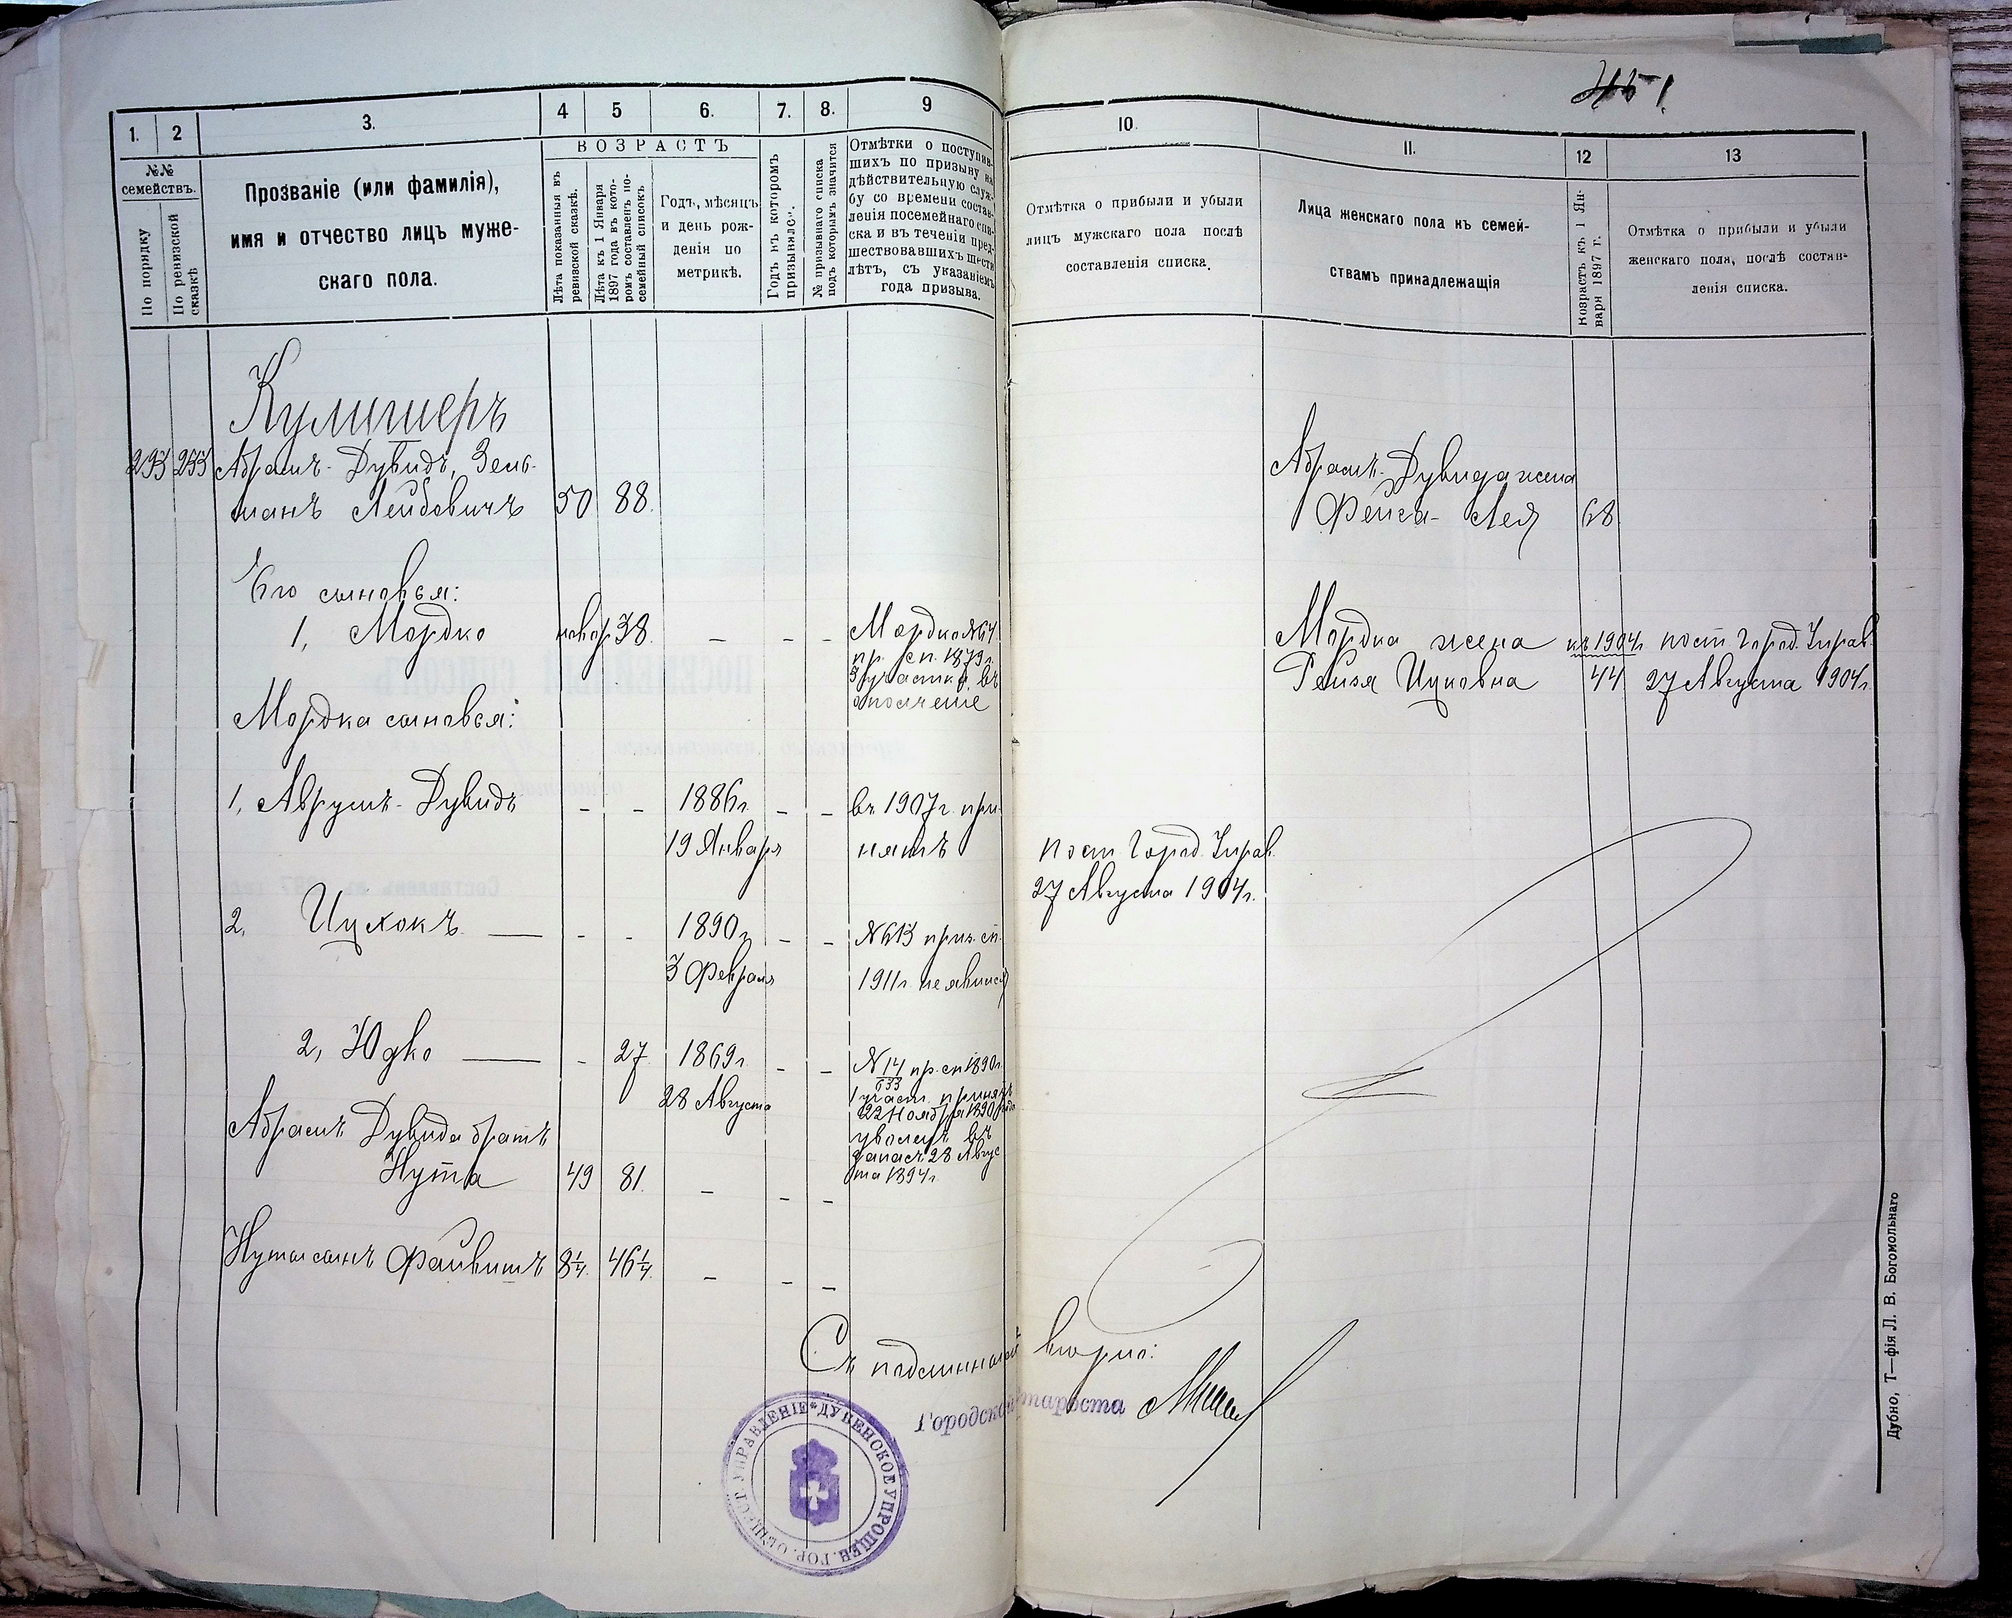 1.
2
3.
4
5
6.
7.
8.
9
№№
семействъ.
По порядку
По ревизской сказкѣ
Прозваніе (или фамилія),
имя и отчество лицъ муже-
скаго пола.
ВОЗРАСТЪ
Лѣта показанныя въ
ревизской сказкѣ.
Лѣта къ 1 Января
1897 года въ кото-
ромъ составленъ по-
семейный списокъ
Годъ, мѣсяцъ
и день рож-
денія по
метрикѣ.
Годъ въ которомъ
призывался.
№ призывнаго списка
подъ которымъ значится
Отмѣтки о поступив-
шихъ по призыву на
дѣйствительную служ-
бу со времени состав-
ленія посемейнаго спи-
ска и въ теченіи пред-
шествовавшихъ шести
лѣтъ, съ указаніемъ
года призыва.
Кулишеръ
293 293 Абрамъ-Дувидъ, Зель-
манъ Лейбовичъ 50 88
Его сыновья:
1, Мордко новор 38. – – – Мордко №64
пр. сп. 1879 г.
3 участка въ
ополченіе
Мордка сыновья:
1, Аврумъ-Дувидъ – – 1886 г. – – въ 1907 г. при-
19 Января нятъ
2, Ицхокъ – – 1890 г. – – №613 приз. сп.
3 Февраля 1911 г. не явился
2, Юдко – 27 1869 г. – – №14 пр. сп 1890 г.
633
28 Августа 1 участ. принятъ
22 Ноября 1890 года
уволенъ въ
запасъ 28 Авгус
та 1894 г.
Абрамъ Дувида братъ
Нута 49 81. – – –
Нуты сынъ Файвишъ 8¼ 46¼. – – –
10.
11.
12
13
Отмѣтка о прибыли и убыли
лицъ мужскаго пола послѣ
составленія списка.
Лица женскаго пола къ семей-
ствамъ принадлежащія
Возрастъ къ 1 Ян-
варя 1897 г.
Отмѣтка о прибыли и убыли
женскаго пола, послѣ состав-
ленія списка.
Абрамъ-Дувида жена
Фейга-Лея 68
Мордка жена къ 1904 г. пост Город. Управ.
Рейзя Ицковна 44 27 Августа 1904 г.
пост Город. Управ.
27 Августа 1904 г.
Съ подлиннымъ вѣрно:
Городской староста
ДУБЕНСКОЕ УПРОЩЕН. ГОР. ОБЩЕСТ. УПРАВЛЕНІЕ
Дубно, Т—фія Л. В. Богомольнаго